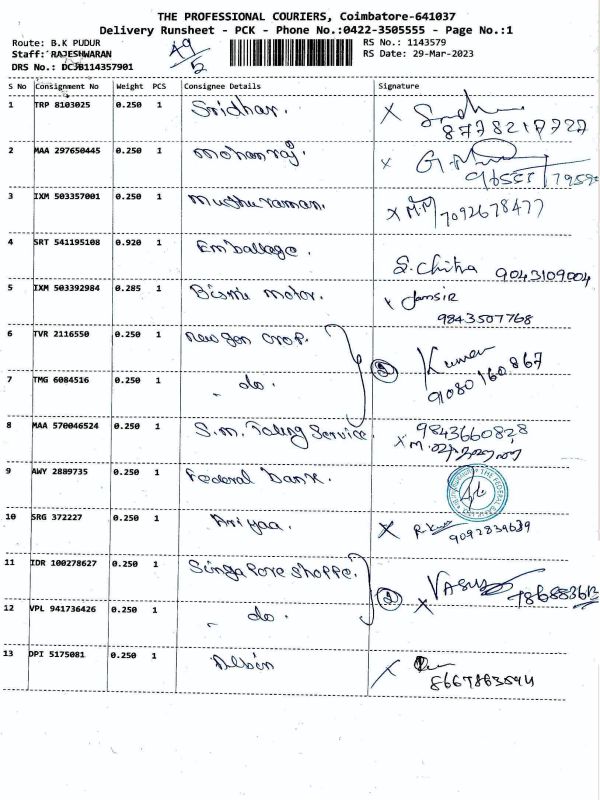 THE PROFESSIONAL COURIERS, Coimbatore-641037
Delivery Runsheet - PCK - Phone No.:0422-3505555 - Page No.:1
Route: B.K PUDUR
Staff: RAJESHWARAN
DRS No.: DC3B114357901
49/5
RS No.: 1143579
RS Date: 29-Mar-2023
S No Consignment No Weight PCS Consignee Details Signature
1 TRP 8103025 0.250 1 Sridhar. X
8778217727
2 MAA 297650445 0.250 1 mohanraj. X
3 IXM 503357001 0.250 1 muthuraman. X M.M 7092678477
4 SRT 541195108 0.920 1 Emballage. S. Chitra 9043109004
5 IXM 503392984 0.285 1 Bismi motor. x Jamsir
9843507768
6 TVR 2116550 0.250 1 newgen crop. Kumar
9080160867
7 TMG 6084516 0.250 1 - do. 2
8 MAA 570046524 0.250 1 S.M. Taling Service. 9843660828
9 AWY 2889735 0.250 1 Federal bank.
10 SRG 372227 0.250 1 Ariyaa. X
9092839639
11 IDR 100278627 0.250 1 Singapore shoppe. 2 X VASU
12 VPL 941736426 0.250 1 - do.
13 DPI 5175081 0.250 1 Albin X
8667863594